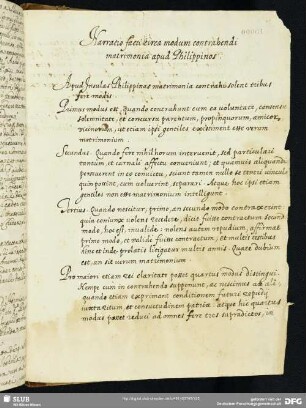 Narratio facti circa modum contrahendi
matrimonia apud Philippinos
Apud Insulas Philippinas matrimonia contrahi solent tribus
fere modis
Primus modus est, Quando contrahunt cum ea voluntate,
solemnitate, et concursu parentum, propinquorum, amicorum,
vicinorum, ut etiam ipsi gentiles existiment esse verum
matrimonium.
Secundus Quando fere nihil horum intervenit, sed particulari
tantum, et carnali affectu conveniunt, et quamvis aliquando
perseverent in eo convictu, sciunt tamen nullo se teneri vinculo
quin possint, cum voluerint, separari. Atque hoc ipsi etiam
gentiles non esse matrimonium intelligunt.
Tertius Quando nescitur, primo, an secundo modo contraxerint
quia coniunx volens recedere, dicit fuisse contractum secundo
modo, hoc est, invalide: nolens autem repudium, affirmat
primo modo, et valide fuisse contractum, et multis testibus
hinc et inde prolatis litigatur multis annis. Quare dubium
est an sit verum matrimonium
Pro maiori etiam rei claritate potest quartus modus distingui.
Nempe cum in contrahendo apponunt, ac nectunt
quando etiam exprimunt conditionem futuri repudii
iuxta ritum, et consuetudinem patriae. atque hic quartus
modus potest reduci ad omnes fere tres supradictos, in
SLUB
Wir führen Wissen.
gefördert von der
Deutschen Forschungsgemeinschaft
DFG